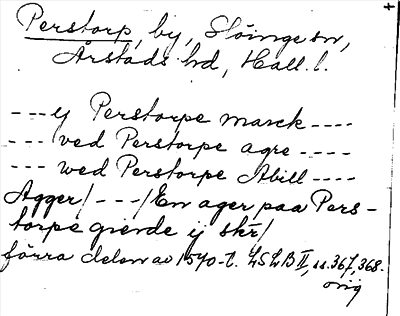 Perstorp, by, Slöinge sn,
Årstads hd, Hall. l.
--- ij Perstorpe marck ----
--- ved Perstorpe agre ----
--- wed Perstorpe Abill ----
Agger/ ---/ En ager paa Pers-
torpe gierde ij skr/
förra delen av 1570-t. LSLB II, ss. 367, 368.
orig